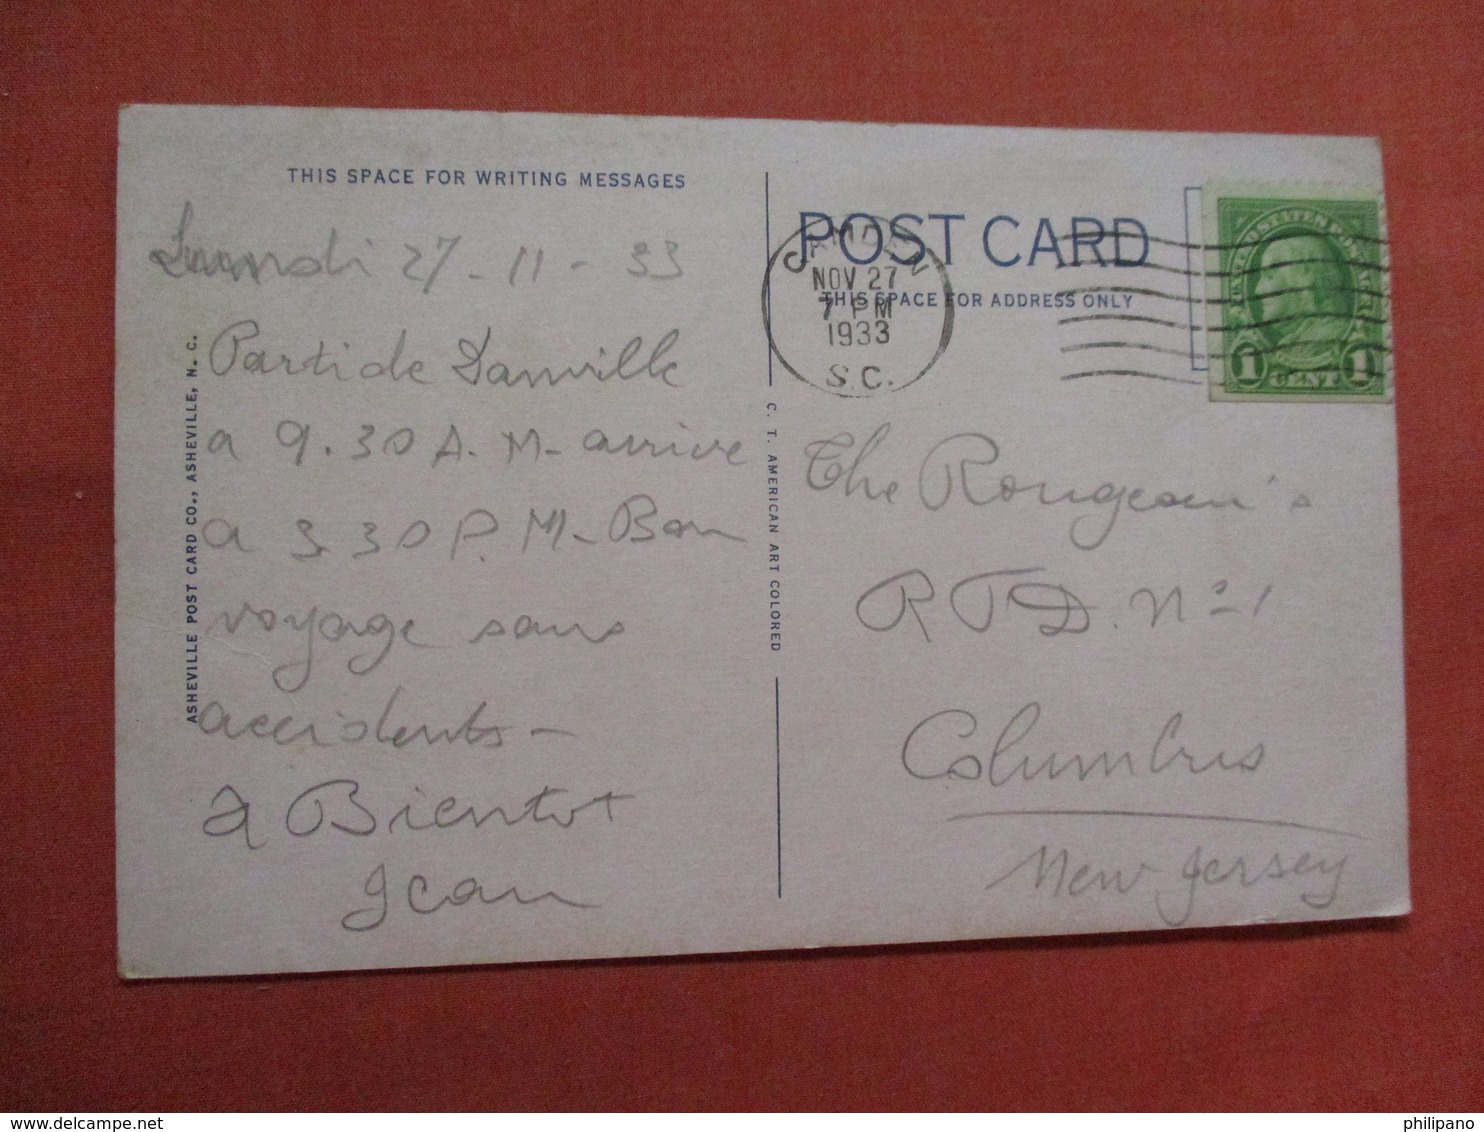 THIS SPACE FOR WRITING MESSAGES
Lundi 27-11-33
Parti de Danville
a 9.30 A.M- arrive
a 3 30 P.M- Bon
voyage sans
accidents-
a Bientot
Jean
ASHEVILLE POST CARD CO., ASHEVILLE, N. C.
C. T. AMERICAN ART COLORED
POST CARD
THIS SPACE FOR ADDRESS ONLY
CAMDEN
NOV 27
7 PM
1933
S.C.
UNITED STATES POSTAGE
1 CENT 1
The Rougeau's
R F D. No-1
Columbus
New Jersey
philipano
delcampe.net